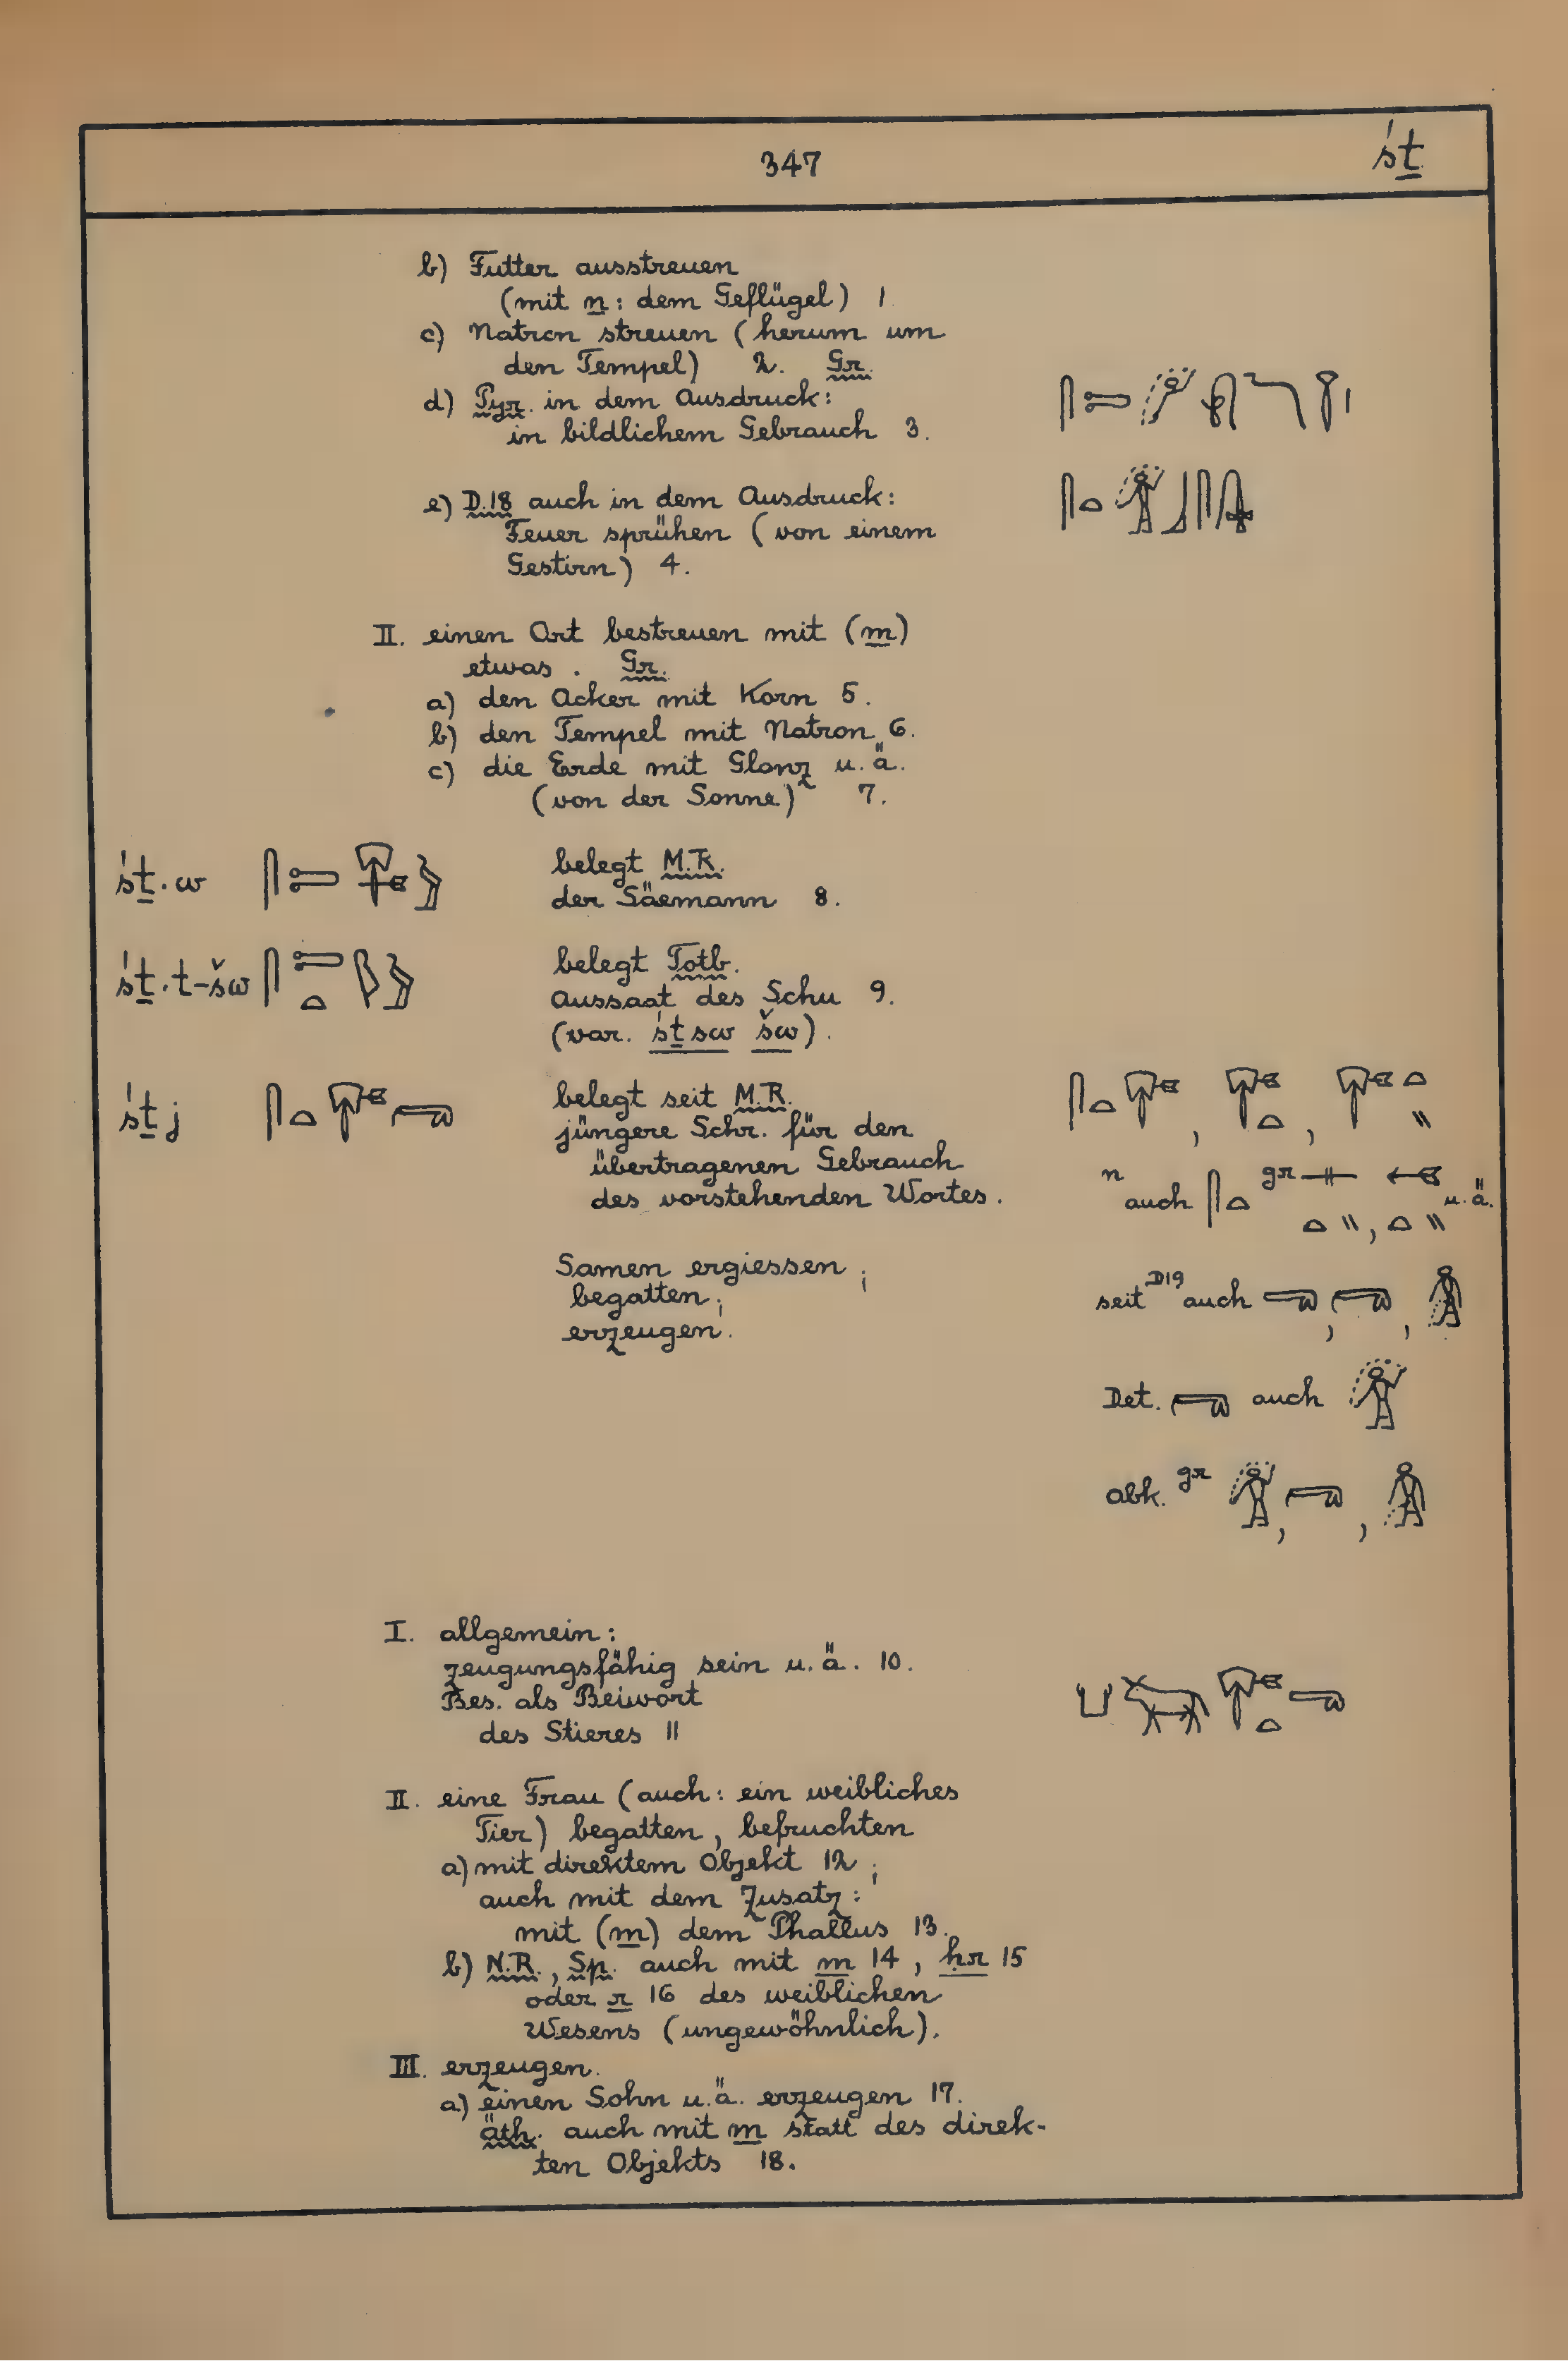 347
śṯ
b) Futter ausstreuen
(mit n : dem Geflügel) 1.
c) Natron streuen (herum um
den Tempel) 2. Gr.
d) Pyr. in dem Ausdruck:
in bildlichem Gebrauch 3.
e) D.18 auch in dem Ausdruck:
Feuer sprühen (von einem
Gestirn) 4.
II. einen Ort bestreuen mit (m)
etwas. Gr.
a) den Acker mit Korn 5.
b) den Tempel mit Natron 6.
c) die Erde mit Glanz u.ä.
(von der Sonne) 7.
śṯ.w
belegt M.R.
der Säemann 8.
śṯ.t-šw
belegt Totb.
Aussaat des Schu 9.
(var. śṯsw šw).
śṯj
belegt seit M.R.
jüngere Schr. für den
übertragenen Gebrauch
des vorstehenden Wortes.
n auch gr u.ä.
Samen ergiessen;
begatten;
erzeugen.
seit D19 auch
Det. auch
abk. gr
I. allgemein:
zeugungsfähig sein u.ä. 10.
Bes. als Beiwort
des Stieres 11
II. eine Frau (auch: ein weibliches
Tier) begatten, befruchten
a) mit direktem Objekt 12;
auch mit dem Zusatz:
mit (m) dem Phallus 13.
b) N.R., Sp. auch mit m 14, ḥr 15
oder r 16 des weiblichen
Wesens (ungewöhnlich).
III. erzeugen.
a) einen Sohn u.ä. erzeugen 17.
äth. auch mit m statt des direk-
ten Objekts 18.